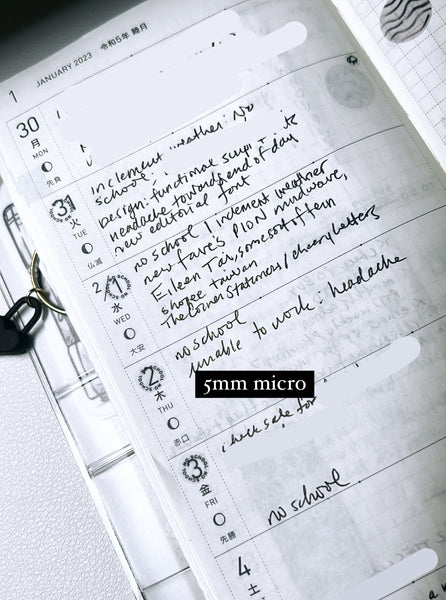 1 JANUARY 2023 令和5年 睦月
30
月
MON
先負
inclement weather: No
school,
31
火
TUE
仏滅
Design: functional script, its
Headache toward end of day
new editorial font
2 1
水
WED
大安
no school | inclement weather
new faves PION mudwave,
Eileen Tai, some sort of fern
shopee taiwan
The Corner Stationers/cheeryletters
2
木
THU
赤口
no school
unable to work: headache
5mm micro
3
金
FRI
先勝
check sale for
no school
4
土